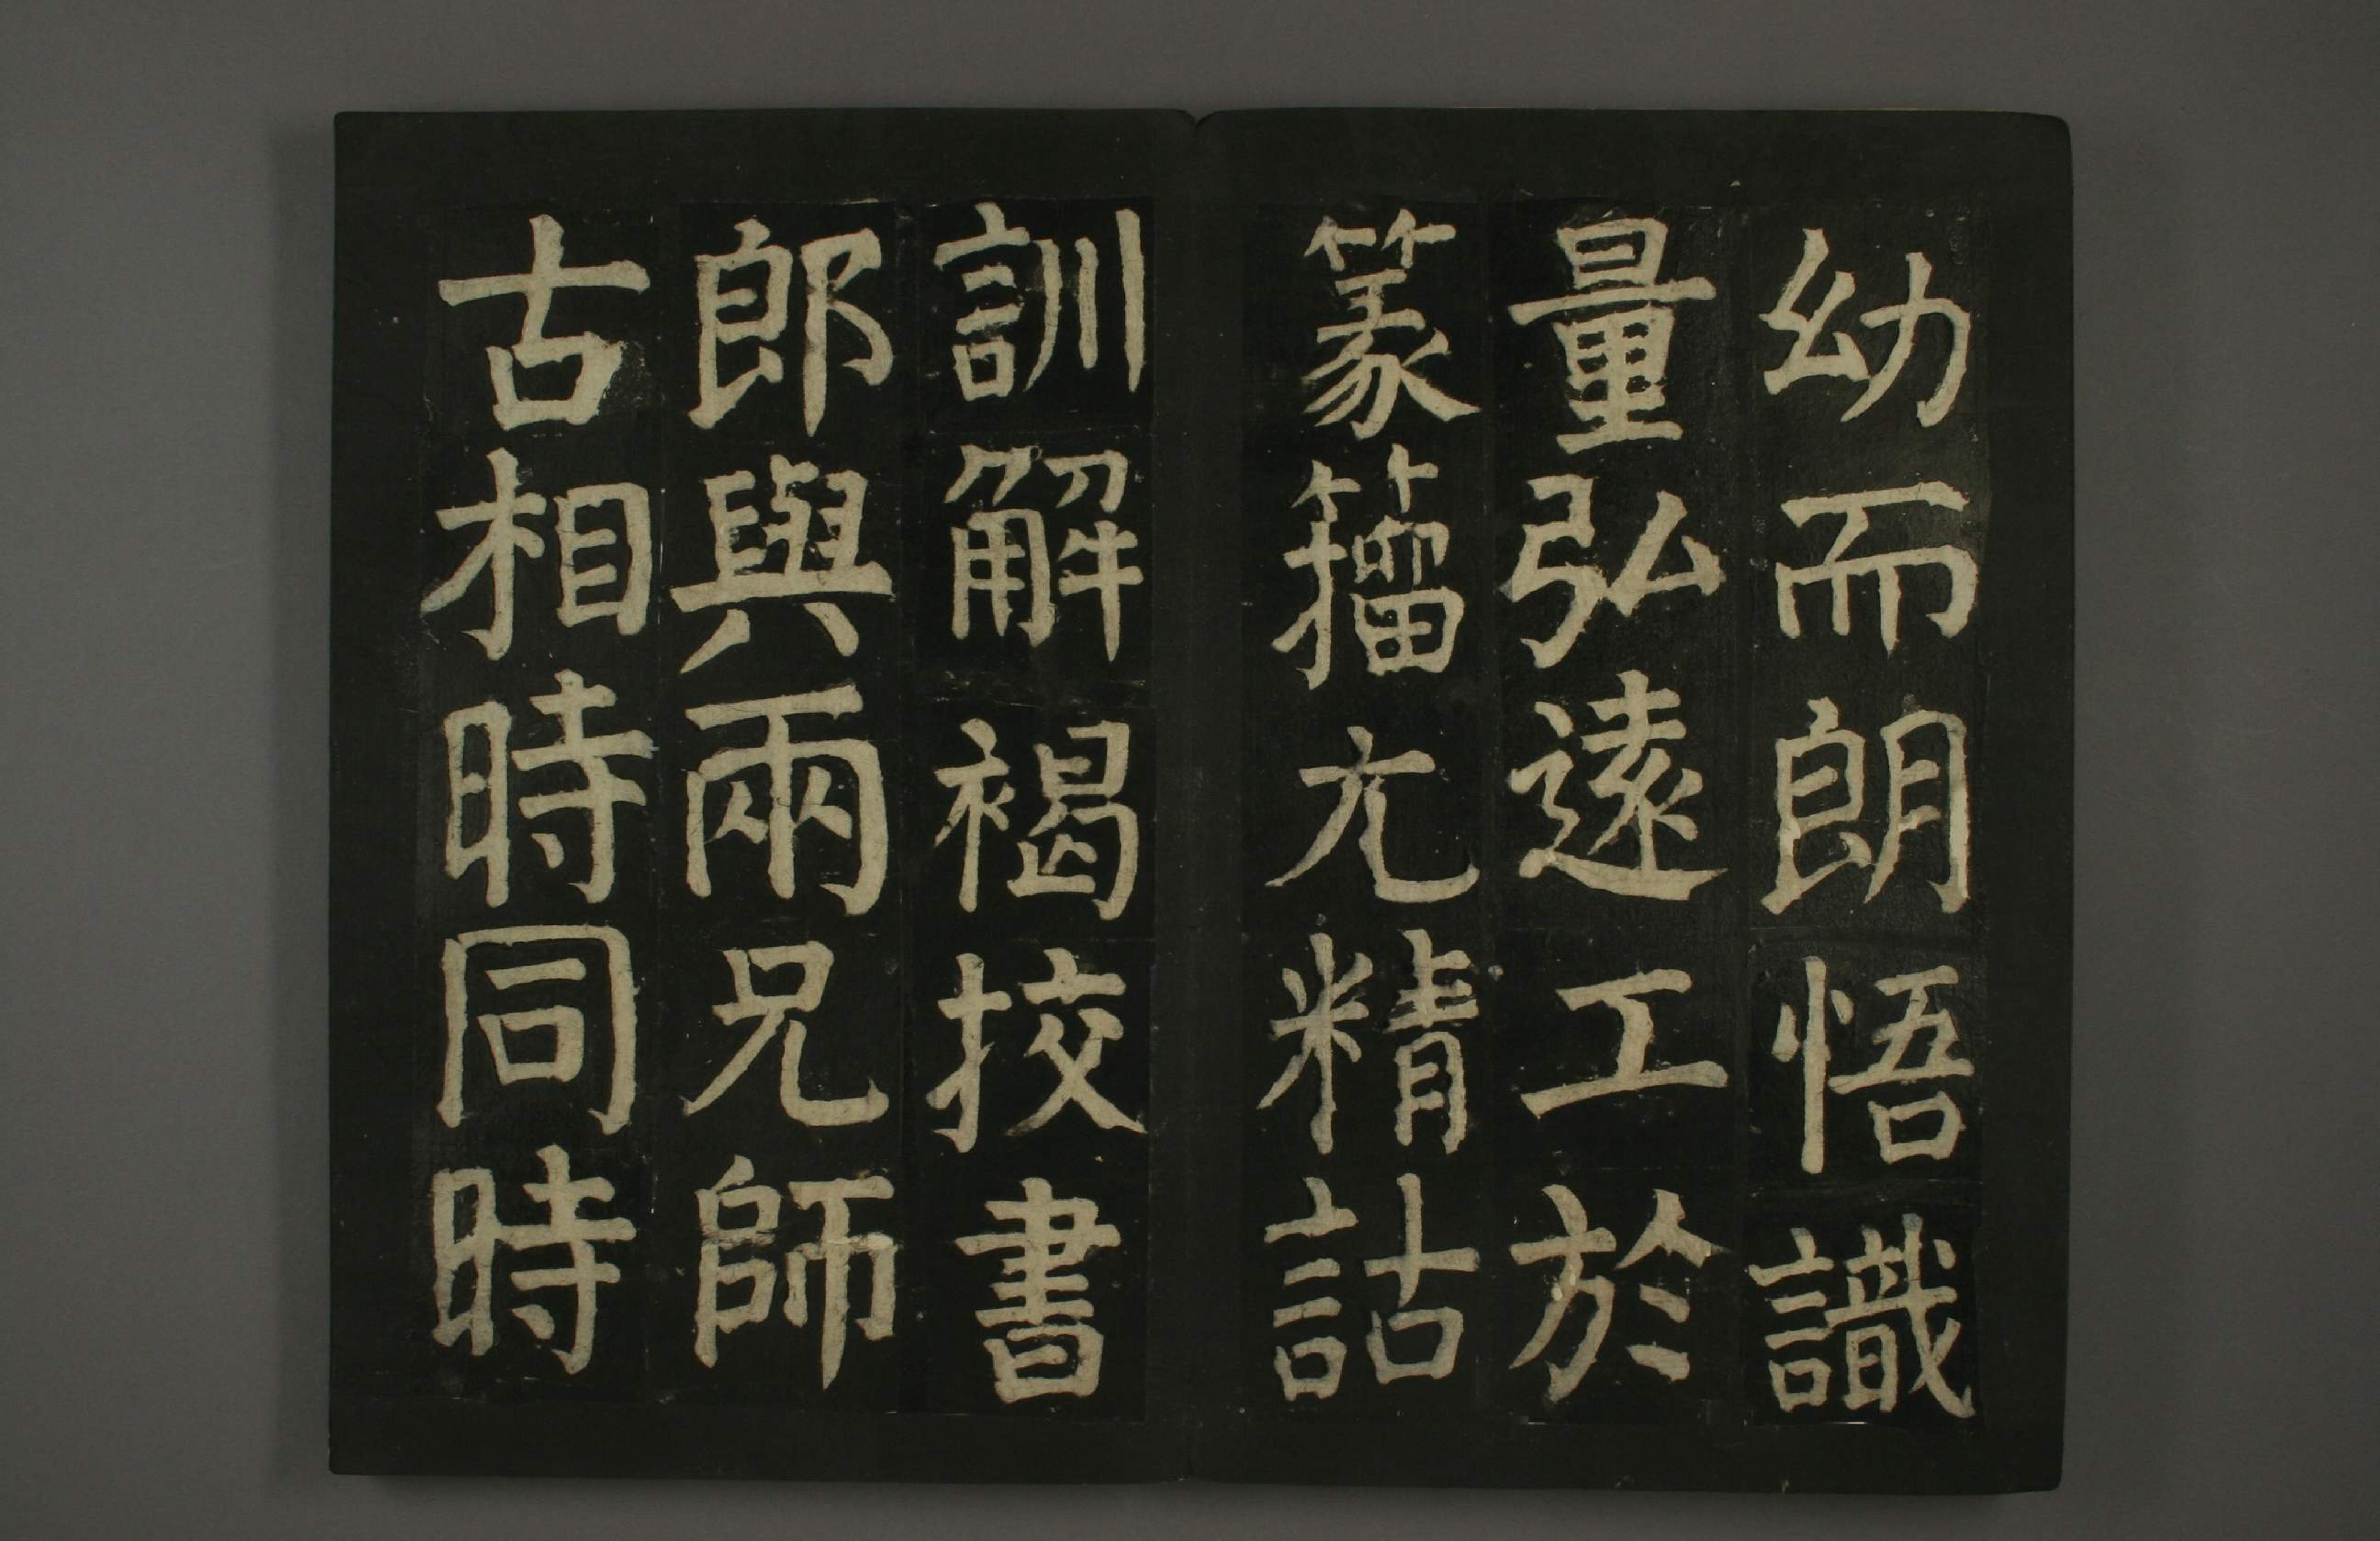 幼而朗悟識
量弘遠工於
篆籀尤精詁
訓解褐挍書
郎與兩兄師
古相時同時